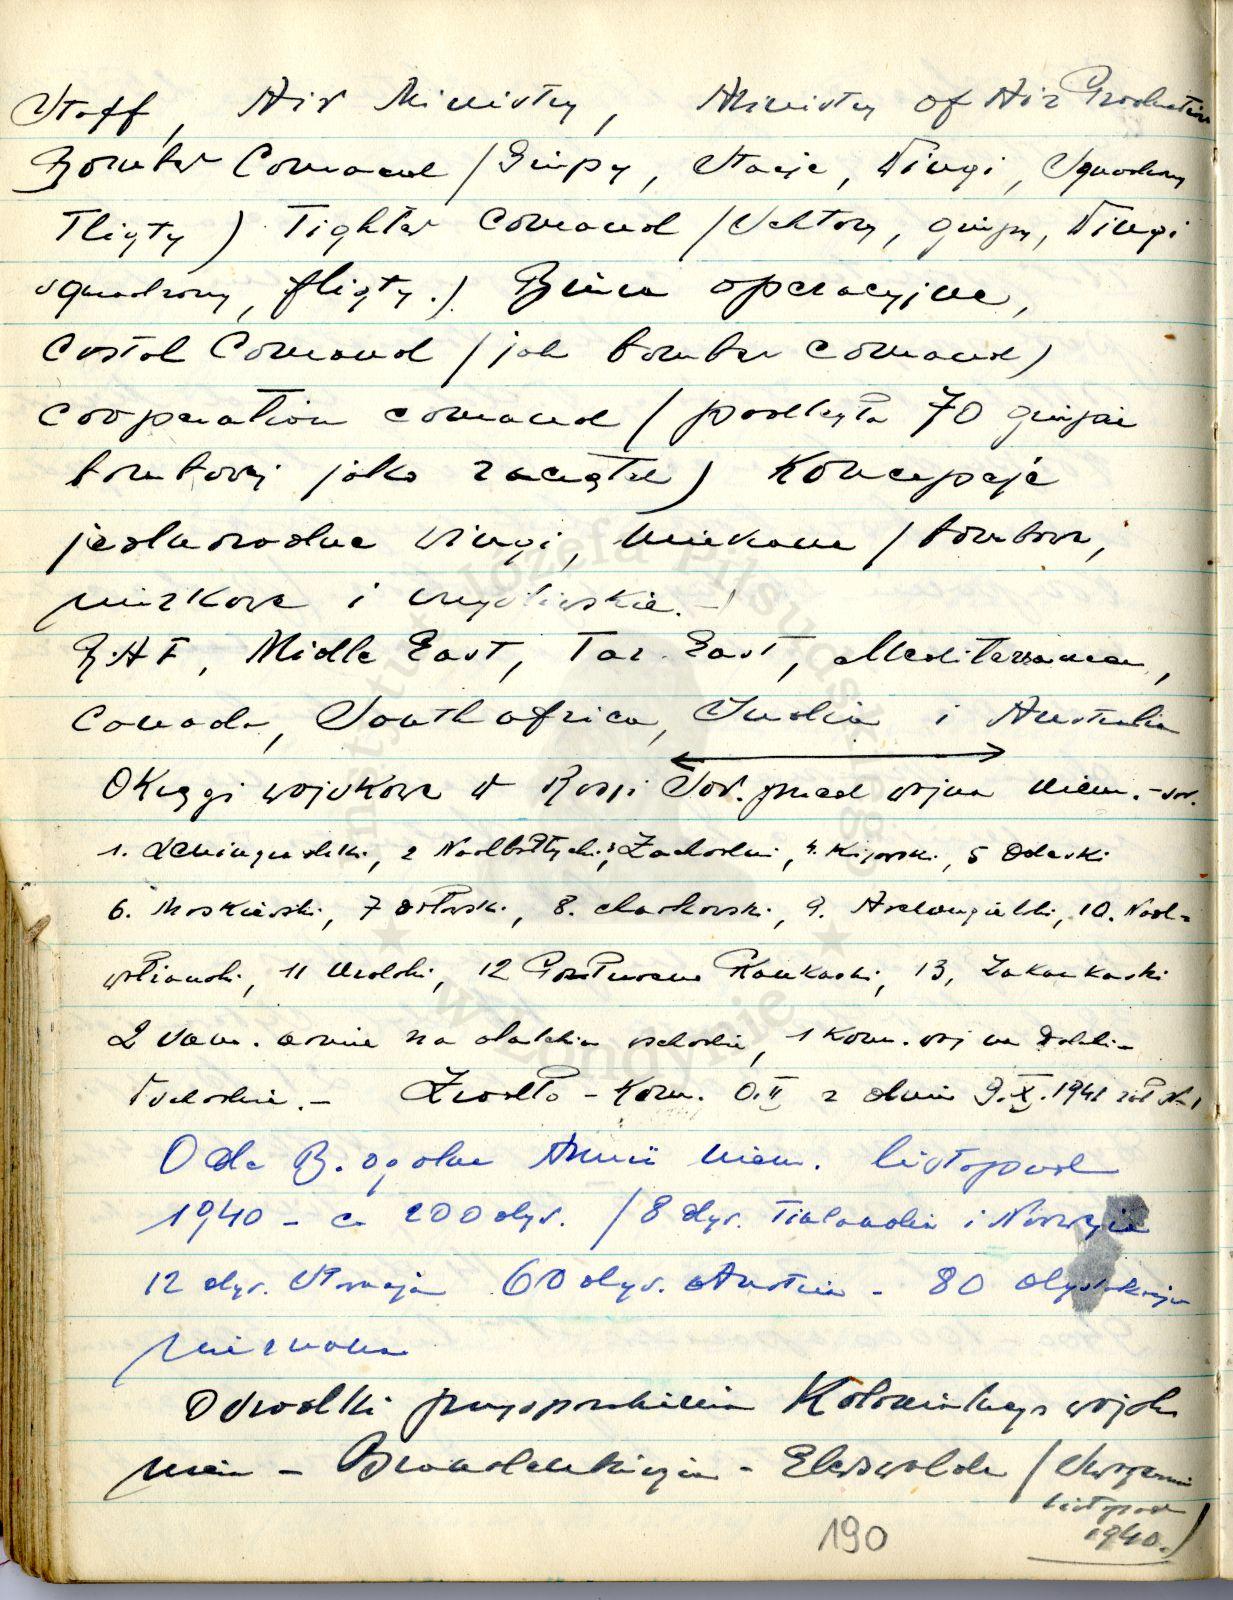 Staff, Air Ministry, Ministry of Air Production
Bomber Comand / Grupy, Stacje, Wingi, Squadrony
Fligty ) Fighter Comand / Sektory, grupy, Wingi
squadrony, fligty.) Biura operacyjne,
Costal Comand / jak bomber comand )
Cooperation comand / podległa 70 grupie
bombowej jako zaczątek ) Koncepcje
jednorodne wingi, mieszane / bombowe,
nurkowe i myśliwskie. -
R.A.F, Midle East, Far East, Mediteranean,
Canada, South africa, India i Australia
Okręgi wojskowe w Rosji Sow. przed wojną niem.-sow.
1. Leningradzki, 2 Nadbałtycki, 3. Zachodni, 4. Kijowski, 5 Odeski
6. Moskiewski, 7 Orłowski, 8. Charkowski, 9. Archangielski, 10. Nad-
wołżanski, 11 Uralski, 12 Północno Kaukaski, 13, Zakaukaski
2 sam. armie na dalekim wschodzie, 1 kom. woj na Dalekim
Wschodzie. - Żrodło - Kom. O.II z dnia 9.X.1941 zał Nr 1
O de B. ogolne Armii niem. listopad
1940 - ca 200 dyw. / 8 dyw. Finlandia i Norwegia
12 dyw. Słowacja 60 dyw. Austria - 80 dyslokacja
nieznana
Osrodki przysposobienia Kolonialnego wojska
niem - Brandenburgia - Eberswalde /
listopad
1940.)
190
Instytut Józefa Piłsudskiego
w Londynie